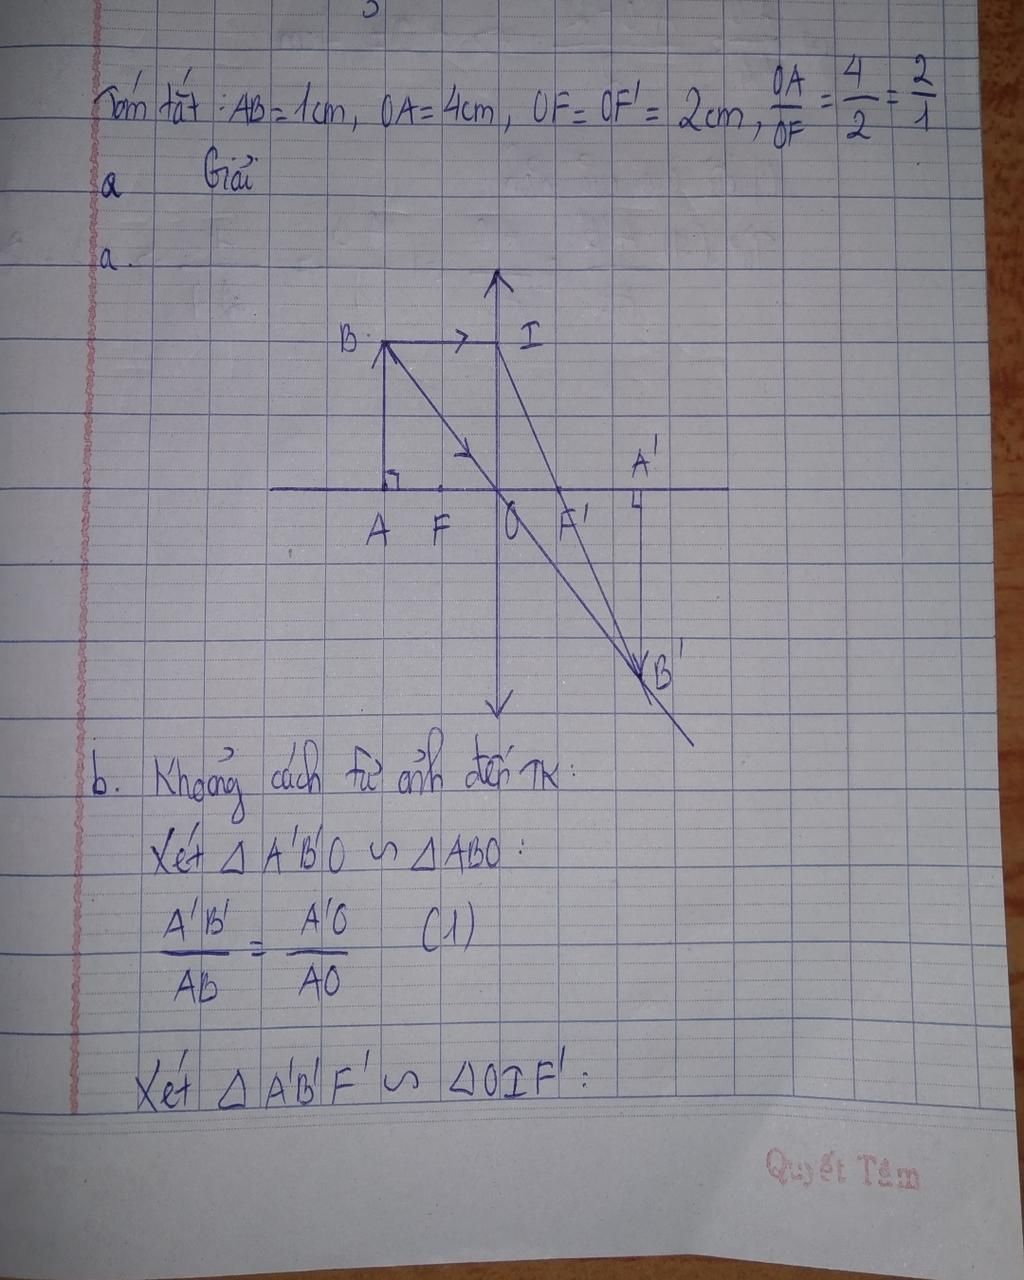 Tóm tắt : AB = 1cm, OA = 4cm, OF = OF' = 2cm, OA/OF = 4/2 = 2/1
a Giải
a.
B I
A'
A F O F'
B'
b. Khoảng cách từ ảnh đến TK:
Xét Δ A'B'O ∽ Δ ABO:
A'B'/AB = A'O/AO (1)
Xét Δ A'B'F' ∽ Δ OIF':
Quyết Tâm